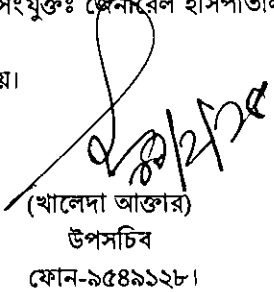 সংযুক্তঃ জেনারেল হাসপাতাল
য়।
(খালেদা আক্তার)
উপসচিব
ফোন-৯৫৪৯১২৮।